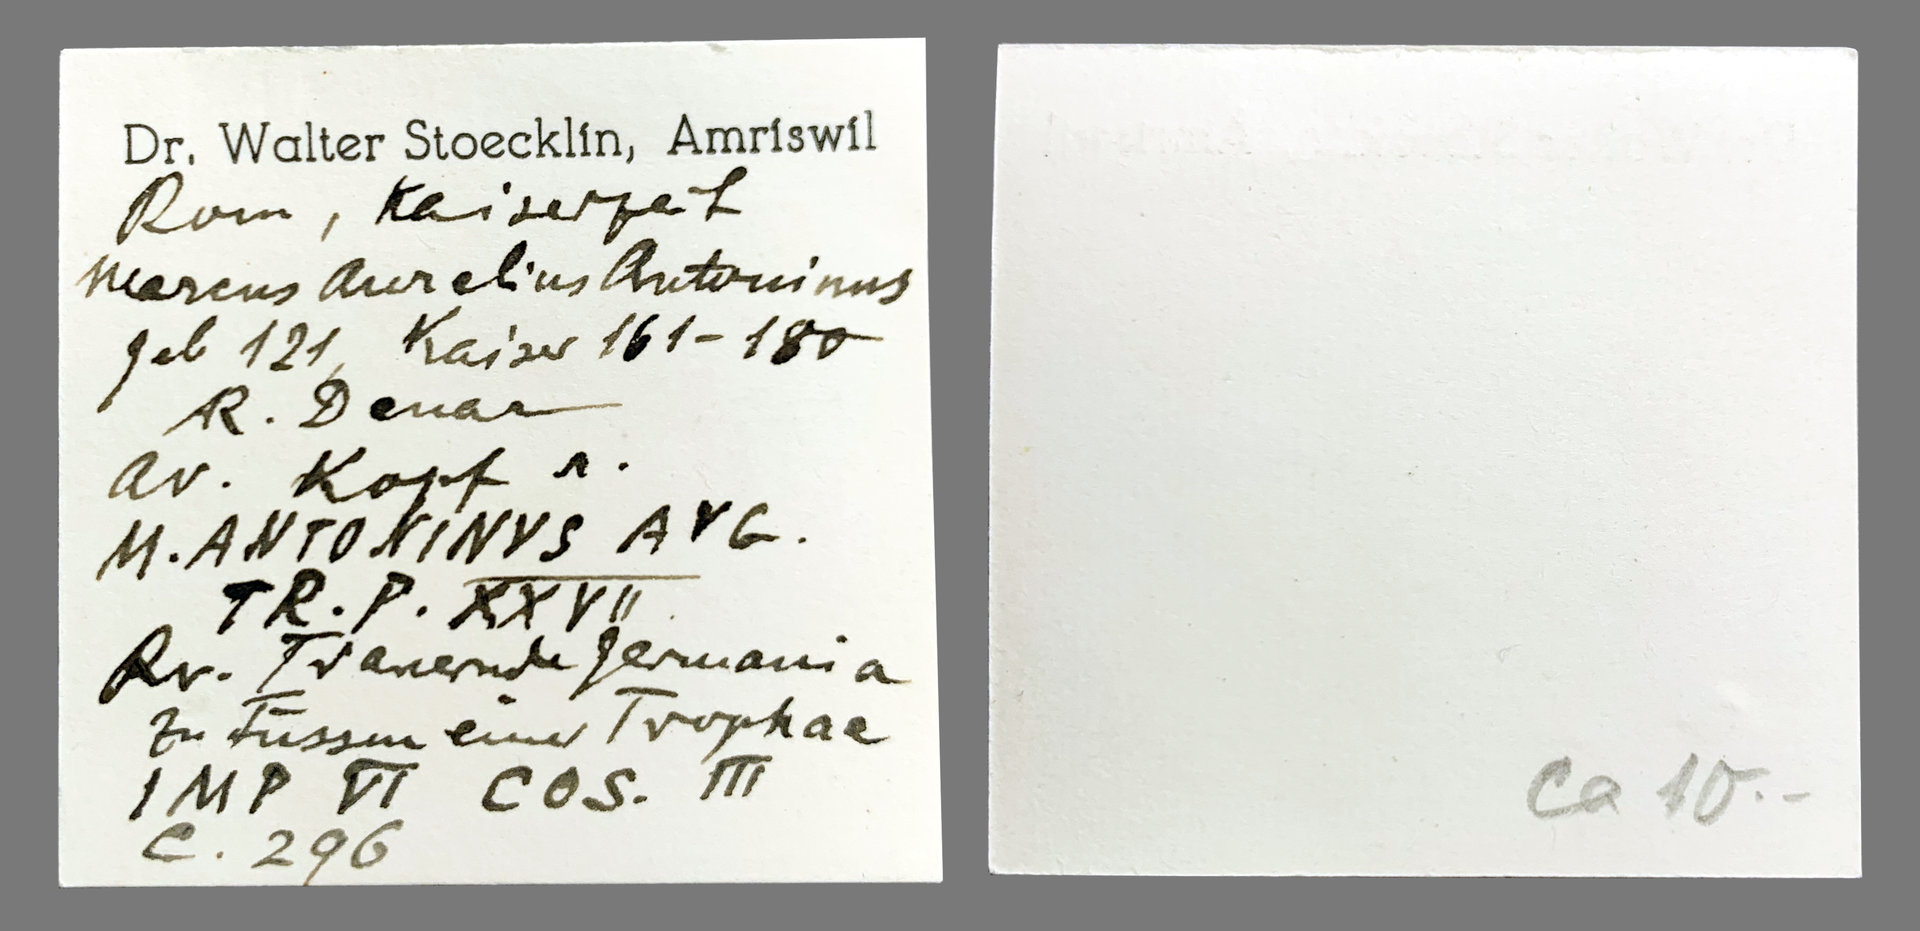 Dr. Walter Stoecklin, Amriswil
Rom, Kaiserzeit
Marcus Aurelius Antoninus
geb 121, Kaiser 161-180
AR. Denar
Av. Kopf r.
M. ANTONINVS AVG.
TR. P. XXVII
Rv. Trauernde Germania
zu Füssen einer Trophae
IMP VI COS. III
C. 296
ca 10.-